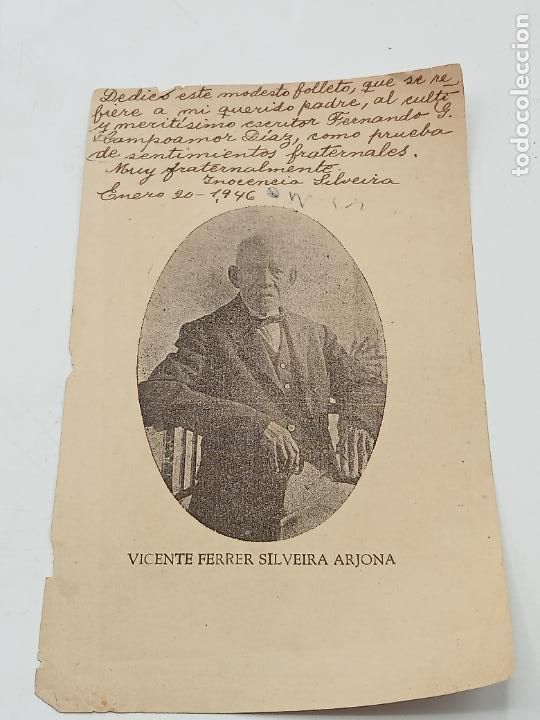 Dedico este modesto folleto, que se re
fiere a mi querido padre, al culto
y meritísimo escritor Fernando G.
Kampoamor Díaz, como prueba
de sentimientos fraternales.
Muy fraternalmente
Inocencia Silveira
Enero 20-1946
VICENTE FERRER SILVEIRA ARJONA
todocoleccion.net